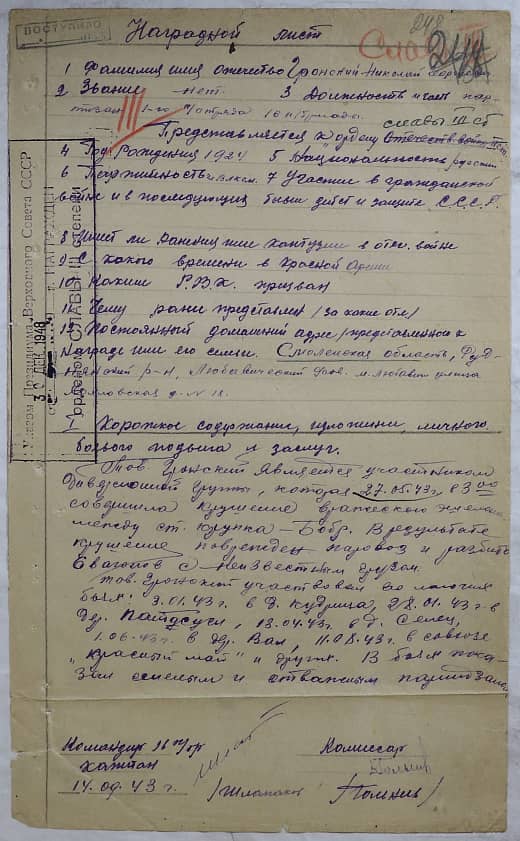 ПОСТУПИЛО
248
Наградной лист
244
1 Фамилия имя отечество Гронский Николай
2 Звание нет. 3 Должность и часть пар-
тизан 1-го отряда 16 п/бригады.
славы III ст
Представляется к ордену
4 Год Рождения 1924 5 Национальность русский
6 Партийность 7 Участие в гражданской
войне и в последующих боев. действ и защите С.С.С.Р.
8 Имеет ли ранения или контузии в отеч. войне
9 С какого времени в Красной Армии
10 Каким Р.В.К. призван
11 Чему ранее представлен (за какие отл)
12 Постоянный домашний адрес представленного к
награде или его семьи. Смоленская область, Руд-
нянский р-н, Любавический м. Любавичи улица
д. N 18.
Указом Президиума Верховного Совета СССР
30 ДЕК 1948
г. НАГРАЖДЕН
Орденом СЛАВЫ III степени
Короткое содержание, изложение, личного
боевого подвига и заслуг.
Тов. Гронский является участником
диверсионной группы, которая 27.05.43 г. в 3 00
совершила крушение вражеского эшелона
между ст. Крупка – Бобр. В результате
крушения поврежден паровоз и разбито
вагонов с неизвестным грузом.
Тов. Гронский участвовал во многих
боях: 3.01.43 г. в д. Кудрица, 28.01.43 г. в
дер. 13.04.43 г. в д. Селец,
1.06.43 г. в дер. Вал, 11.08.43 г. в совхозе
„Красный май" и других. В боях пока-
зал смелым и отважным партизаном
Командир 16 п/бр
капитан
14.09.43 г.
(Шлапаков)
Комиссар